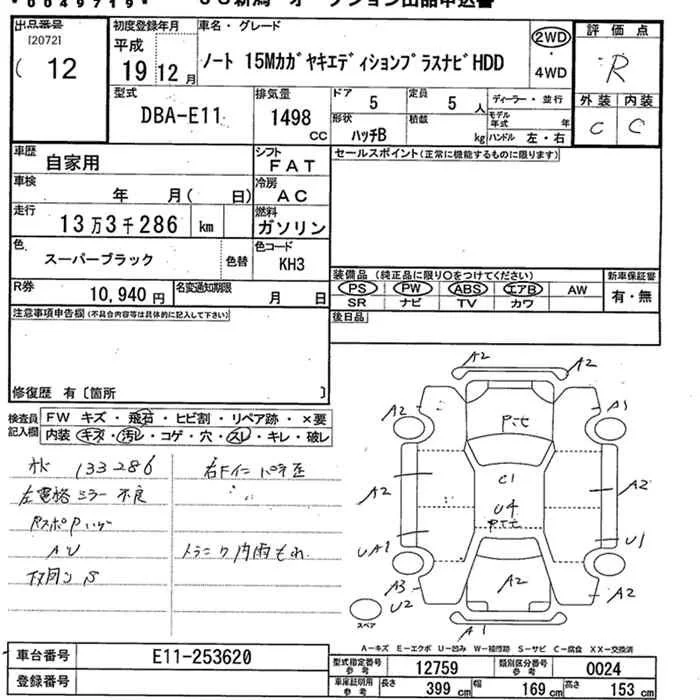 *0049719*
出品番号 初度登録年月 車名・グレード 評価点
120721
( 12
平成 19 12月
ノート 15MカガヤキエディションプラスナビHDD
2WD
・
4WD
R
型式 排気量 ドア 5 定員 5人 ディーラー・並行 外装 内装
DBA-E11 1498 CC
形状 ハッチB 積載 kg モデル年式 年
ハンドル 左・右
C C
車歴 自家用 シフト FAT セールスポイント(正常に機能するものに限ります)
車検 年 月( 日) 冷房 AC
走行 13万3千286 km 燃料 ガソリン
色 スーパーブラック 色替 色コード KH3
装備品 (純正品に限り〇をつけてください) 新車保証書
PS PW ABS エアB AW 有・無
SR ナビ TV カワ
R券 10,940円 名変通知期限 月 日
注意事項申告欄(不具合内容等は具体的に記入して下さい) 後日品
修復歴 有〔箇所 〕
検査員記入欄 FW キズ・飛石・ヒビ割・リペア跡・×要
内装 キズ・汚レ・コゲ・穴・スレ・キレ・破レ
133286
左電格ミラー不良
AU
トランク内雨もれ
A2 A2
A2 A1
Pえ
C1
A2 A2
U4
Pえ
UA1 U1
A2
A3 A2
U2
スペア
A1
A-キズ E-エクボ U-凹み W-補修跡 S-サビ C-腐食 XX-交換済
車台番号 E11-253620
型式指定番号 参考 12759 類別区分番号 参考 0024
登録番号
車庫証明用 参考 長さ 399 cm 幅 169 cm 高さ 153 cm